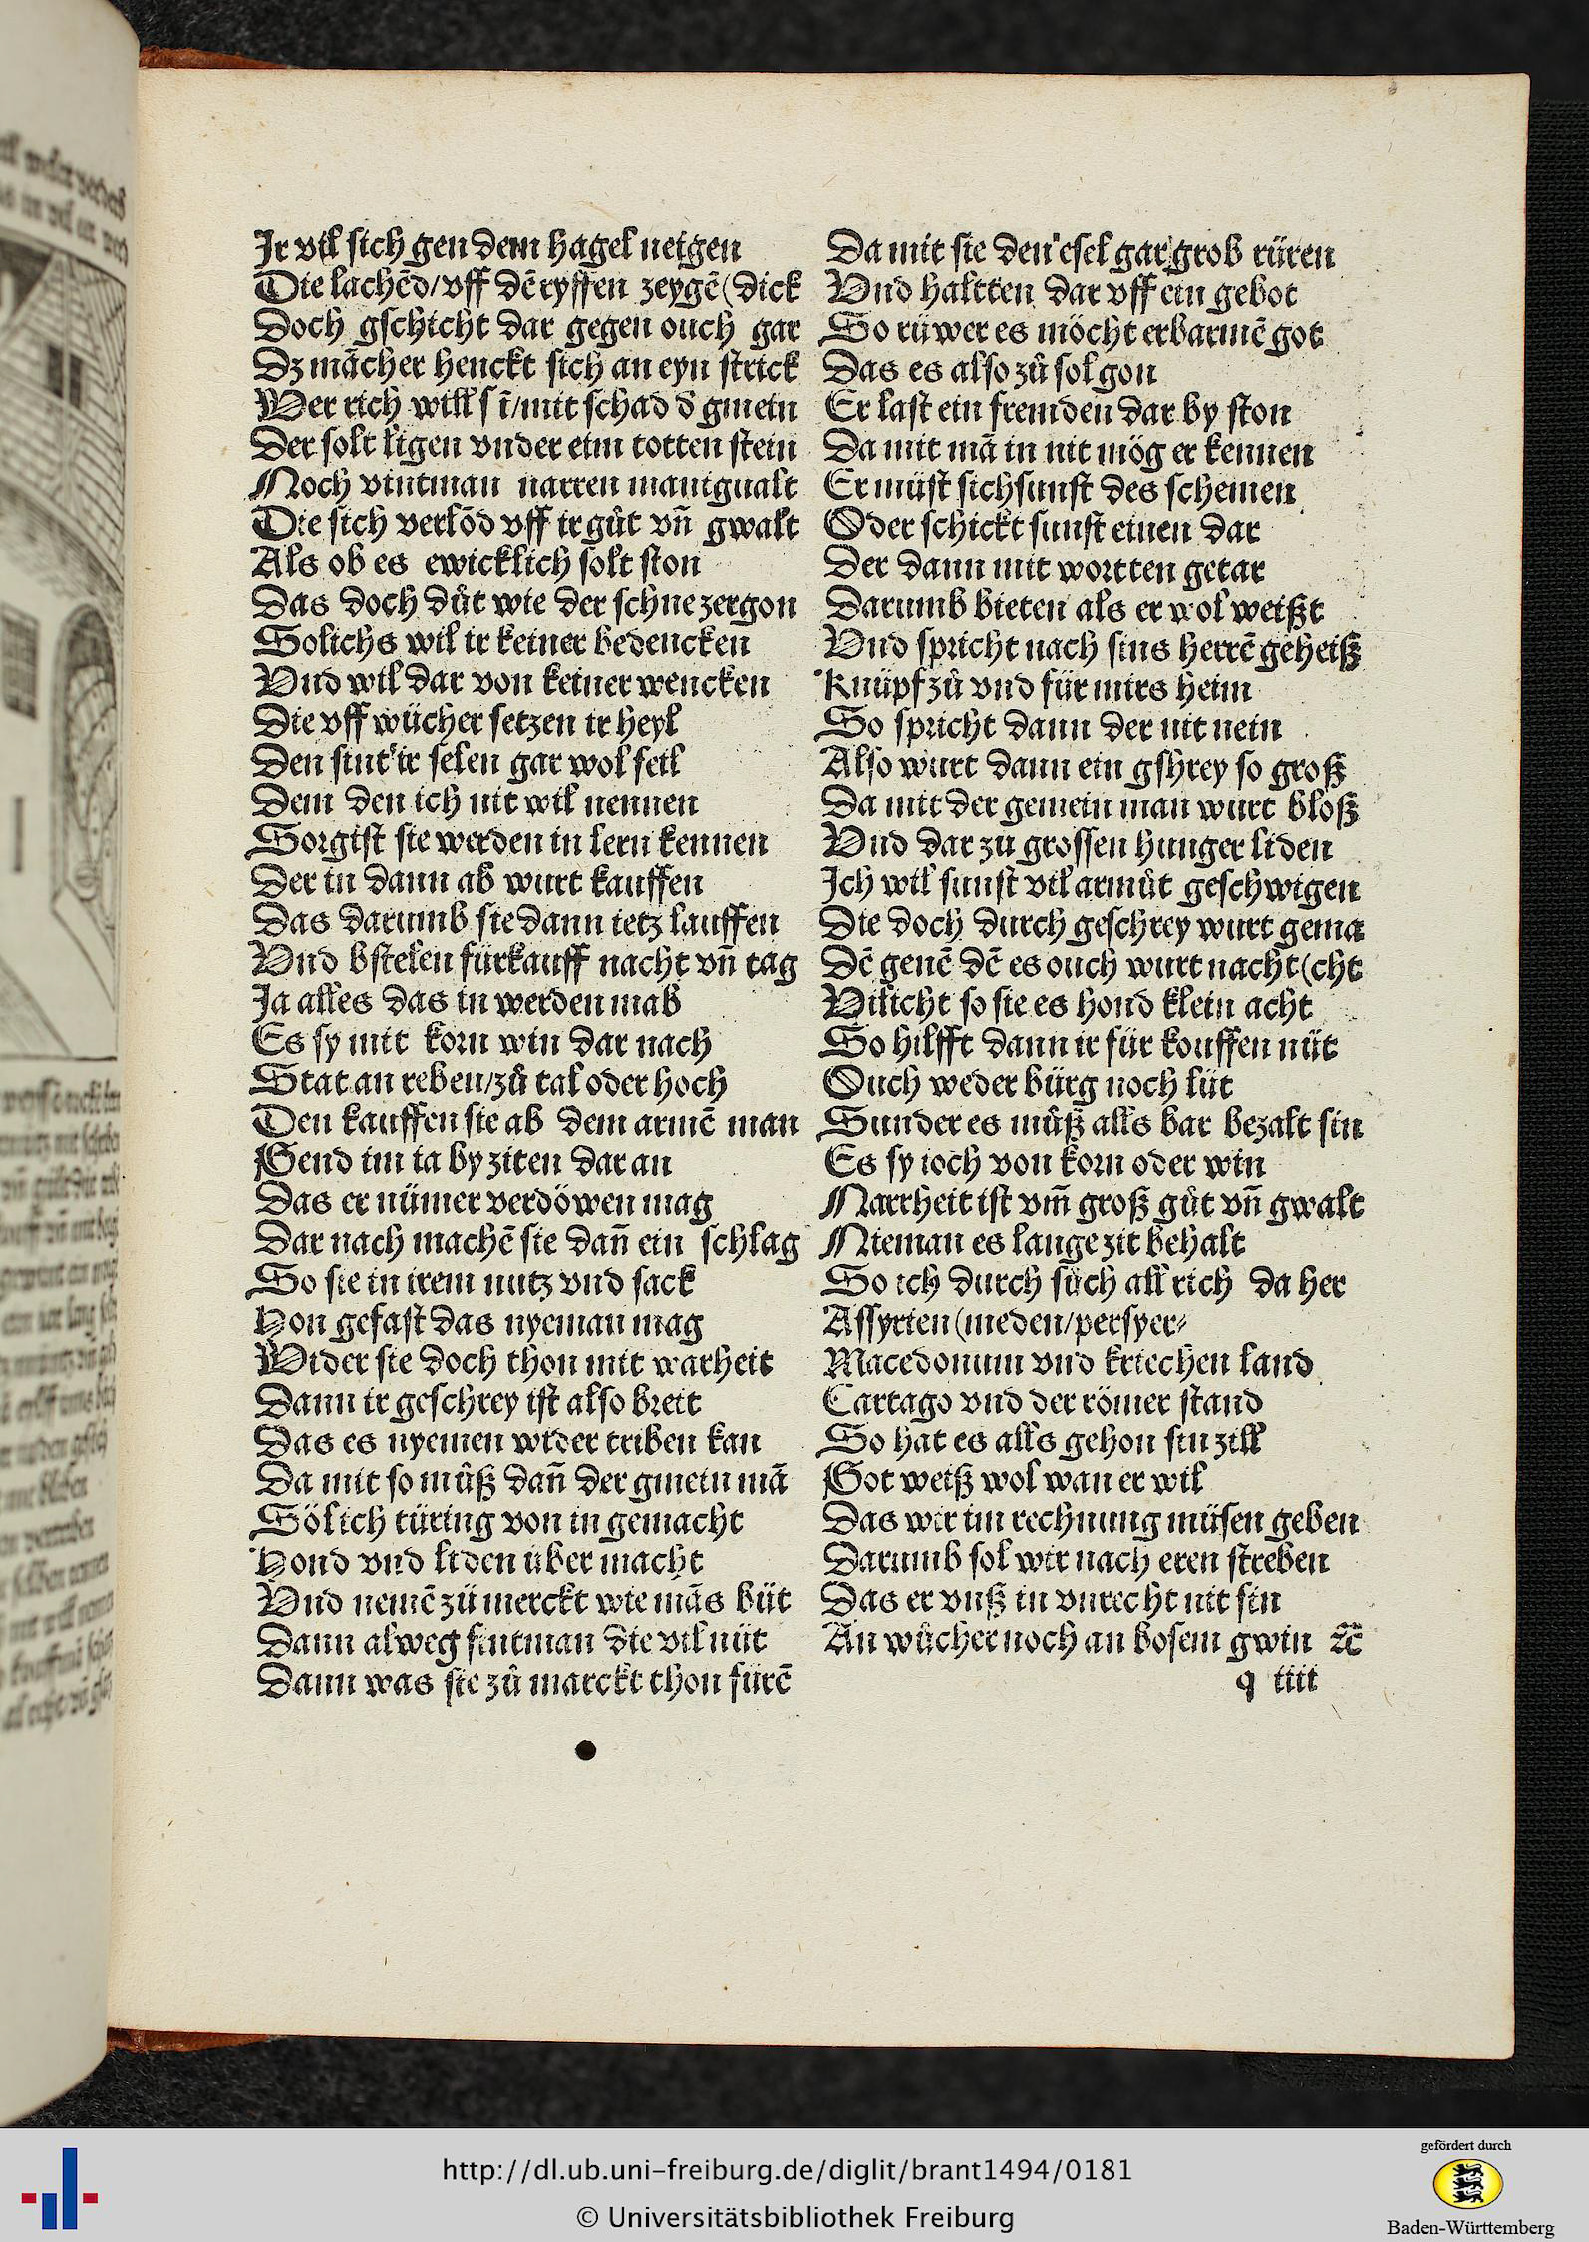 Ir vil sich gen dem hagel neigen
Die lachēd/vff dē ryffen zeygē(dick
Doch gschicht dar gegen ouch gar
Dz mācher henckt sich an eyn strick
Wer rich will s ī/mit schad d̄ gmein
Der solt ligen vnder eim totten stein
Noch vintman narren manigualt
Die sich verlōd vff ir gůt vn̄ gwalt
Als ob es ewicklich solt ston
Das doch důt wie der schne zergon
Solichs wil ir keiner bedencken
Vnd wil dar von keiner wencken
Die vff wücher setzen ir heyl
Den sint ir selen gar wol feil
Dem den ich nit wil nennen
Sorgist sie werden in lern kennen
Der in dann ab wurt kauffen
Das darumb sie dann ietz lauffen
Vnd bstelen fürkauff nacht vn̄ tag
Ja alles das in werden mab
Es sy mit korn win dar nach
Stat an reben/zů tal oder hoch
Den kauffen sie ab dem armē man
Gend im ia by ziten dar an
Das er nümer verdöwen mag
Dar nach machē sie dan̄ ein schlag
So sie in irem nutz vnd sack
Hon gefast das nyeman mag
Wider sie doch thon mit warheit
Dann ir geschrey ist also breit
Das es nyemen wider triben kan
Da mit so můß dan̄ der gmein mā
Sölich türing von in gemacht
Hond vnd liden über macht
Vnd nemē zü merckt wie mās büt
Dann alweg sintman die vil nüt
Dann was sie zů marckt thon fürē
Da mit sie den esel gar grob rüren
Vnd haltten dar vff ein gebot
So rüwer es möcht erbarmē got
Das es also zů sol gon
Er last ein fremden dar by ston
Da mit mā in nit mög er kennen
Er müst sichsunst des schemen
Oder schickt sunst einen dar
Der dann mit wortten getar
Darumb bieten als er wol weißt
Vnd spricht nach sins herrē geheiß
Knüpf zů vnd für mirs heim
So spricht dann der nit nein
Also wurt dann ein gshrey so groß
Da mit der gemein man wurt bloß
Vnd dar zů grossen hunger liden
Ich wil sunst vil armůt geschwigen
Die doch durch geschrey wurt gema
Dē genē dē es ouch wurt nacht(cht
Vilicht so sie es hond klein acht
So hilfft dann ir für kouffen nüt
Ouch weder bürg noch lüt
Sunder es můß alls bar bezalt sin
Es sy ioch von korn oder win
Narrheit ist vm̄ groß gůt vn̄ gwalt
Nieman es lange zit behalt
So ich durch süch all rich da her
Assyrien(meden/persyer⸗
Macedonum vnd kriechen land
Cartago vnd der römer stand
So hat es alls gehon sin zill
Got weiß wol wan er wil
Das wir im rechnung müsen geben
Darumb sol wir nach eren streben
Das er vnß in vnrecht nit sin
An wůcher noch an bosem gwin ⁊c̄
q iiii
http://dl.ub.uni-freiburg.de/diglit/brant1494/0181
© Universitätsbibliothek Freiburg
gefördert durch
Baden-Württemberg